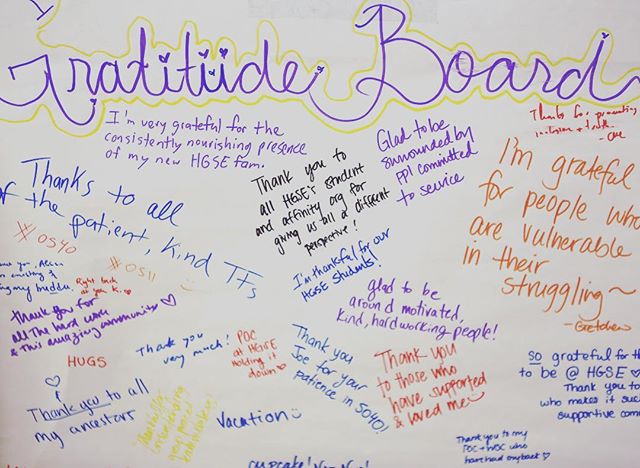 Gratitude Board
I'm very grateful for the
consistently nourishing presence
of my new HGSE fam.
Thanks to all
of the patient, kind TFs
#S040
#S011
Right back
my buddy.
Thank you for
all the hard work
& this amazing community
HUGS
Thank you to all
my ancestors
Thank you
very much!
Thank you to
all HGSE's student
and affinity org for
giving us all a different
perspective!
I'm thankful for our
HGSE Students!
POC
at HGSE
holding it
down
Vacation
Thank you
Joe for your
patience in S040!
Glad to be
surrounded by
ppl committed
to service
glad to be
around motivated,
kind, hardworking people!
Thank you
to those who
have supported
& loved me
Thanks for promoting
inclusion + truth.
I'm grateful
for people who
are vulnerable
in their
struggling~
- Gretchen
so grateful for th
to be @ HGSE
Thank you to
who makes it suc
supportive com
Thank you to my
POC + WOC who
have had my back
cupcake!